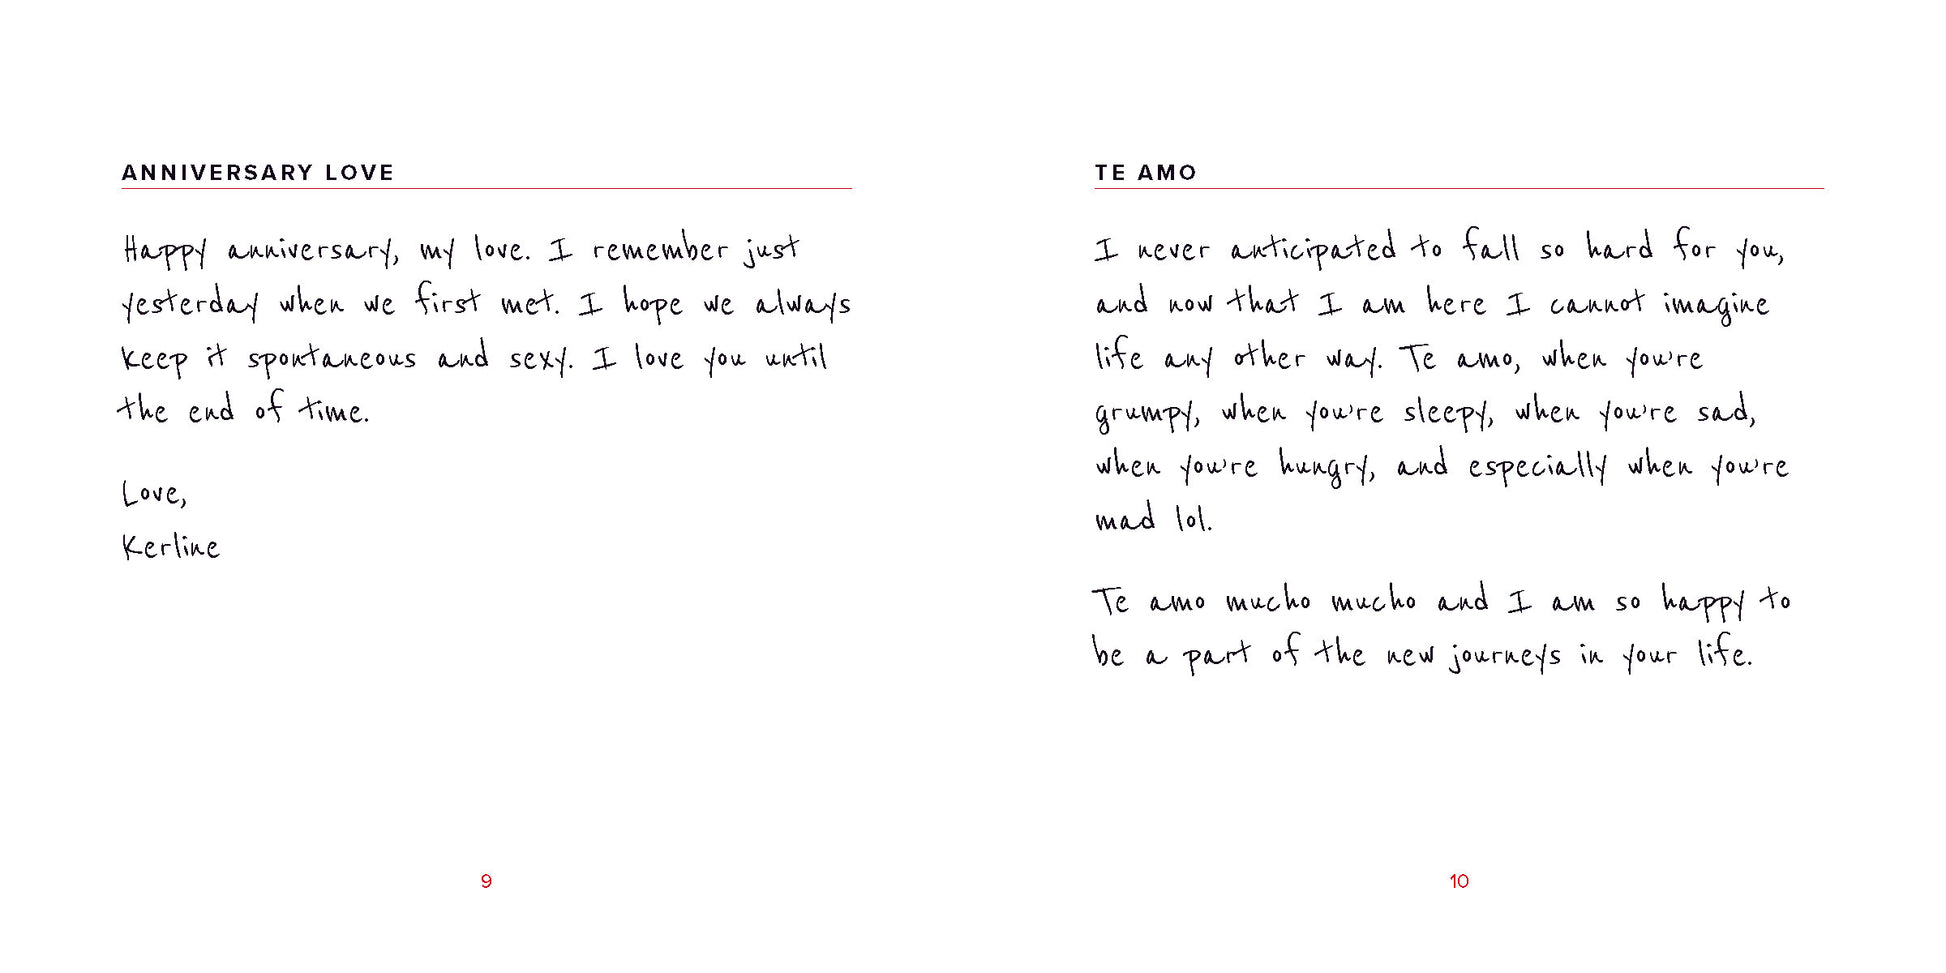 ANNIVERSARY LOVE
Happy anniversary, my love. I remember just
yesterday when we first met. I hope we always
keep it spontaneous and sexy. I love you until
the end of time.
Love,
Kerline
9
TE AMO
I never anticipated to fall so hard for you,
and now that I am here I cannot imagine
life any other way. Te amo, when you're
grumpy, when you're sleepy, when you're sad,
when you're hungry, and especially when you're
mad lol.
Te amo mucho mucho and I am so happy to
be a part of the new journeys in your life.
10